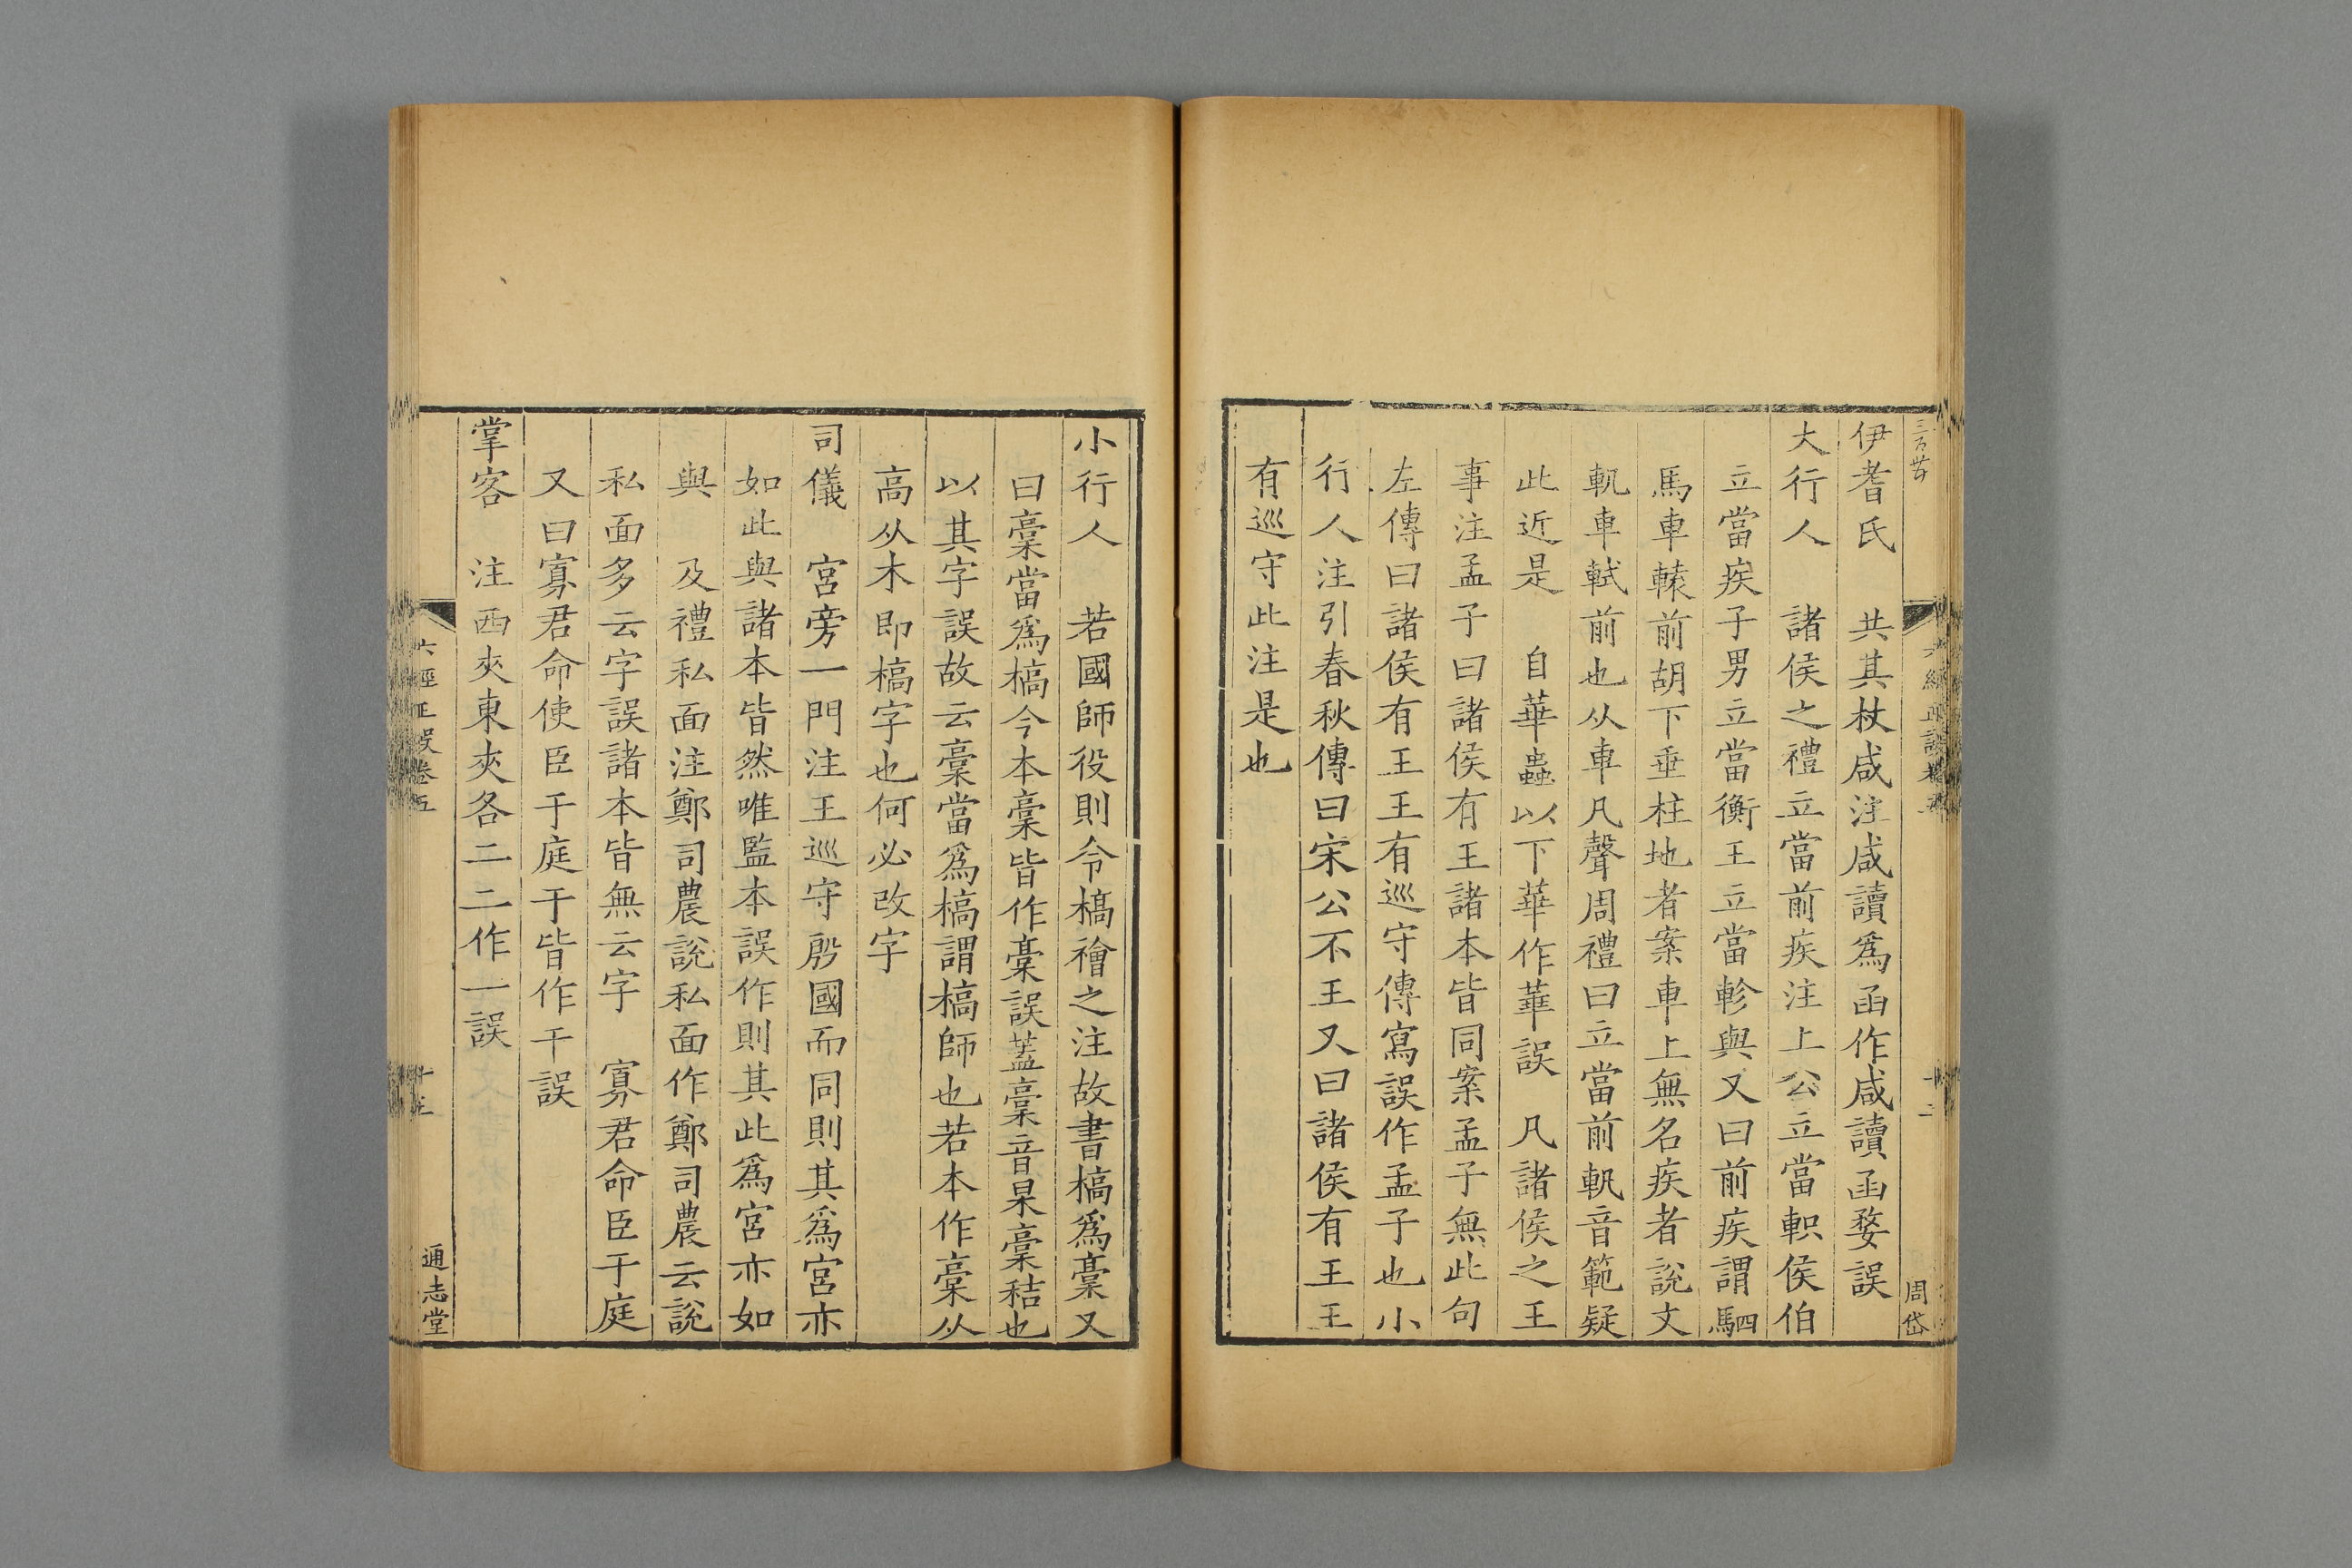 伊耆氏　共其杖咸注咸讀爲函作咸讀函婺誤
大行人　諸侯之禮立當前疾注上公立當軹侯伯
立當疾子男立當衡王立當軫與又曰前疾謂駟
馬車轅前胡下垂柱地者案車上無名疾者説文
軓車軾前也从車凡聲周禮曰立當前軓音範疑
此近是　自華蟲以下華作華誤　凡諸侯之王
事注孟子曰諸侯有王諸本皆同案孟子無此句
左傳曰諸侯有王王有巡守傳寫誤作孟子也小
行人注引春秋傳曰宋公不王又曰諸侯有王王
有巡守此注是也
六經正誤卷五
十二
周岱
小行人　若國師役則令槁襘之注故書槁爲稾又
曰稾當爲槁今本稾皆作稾誤蓋稾音杲稾秸也
以其字誤故云稾當爲槁謂槁師也若本作稾从
高从木即槁字也何必改字
司儀　宮旁一門注王巡守殷國而同則其爲宮亦
如此與諸本皆然唯監本誤作則其此爲宮亦如
與　及禮私面注鄭司農説私面作鄭司農云説
私面多云字誤諸本皆無云字　寡君命臣于庭
又曰寡君命使臣于庭于皆作干誤
掌客　注西夾東夾各二二作一誤
六經正誤卷五
通志堂